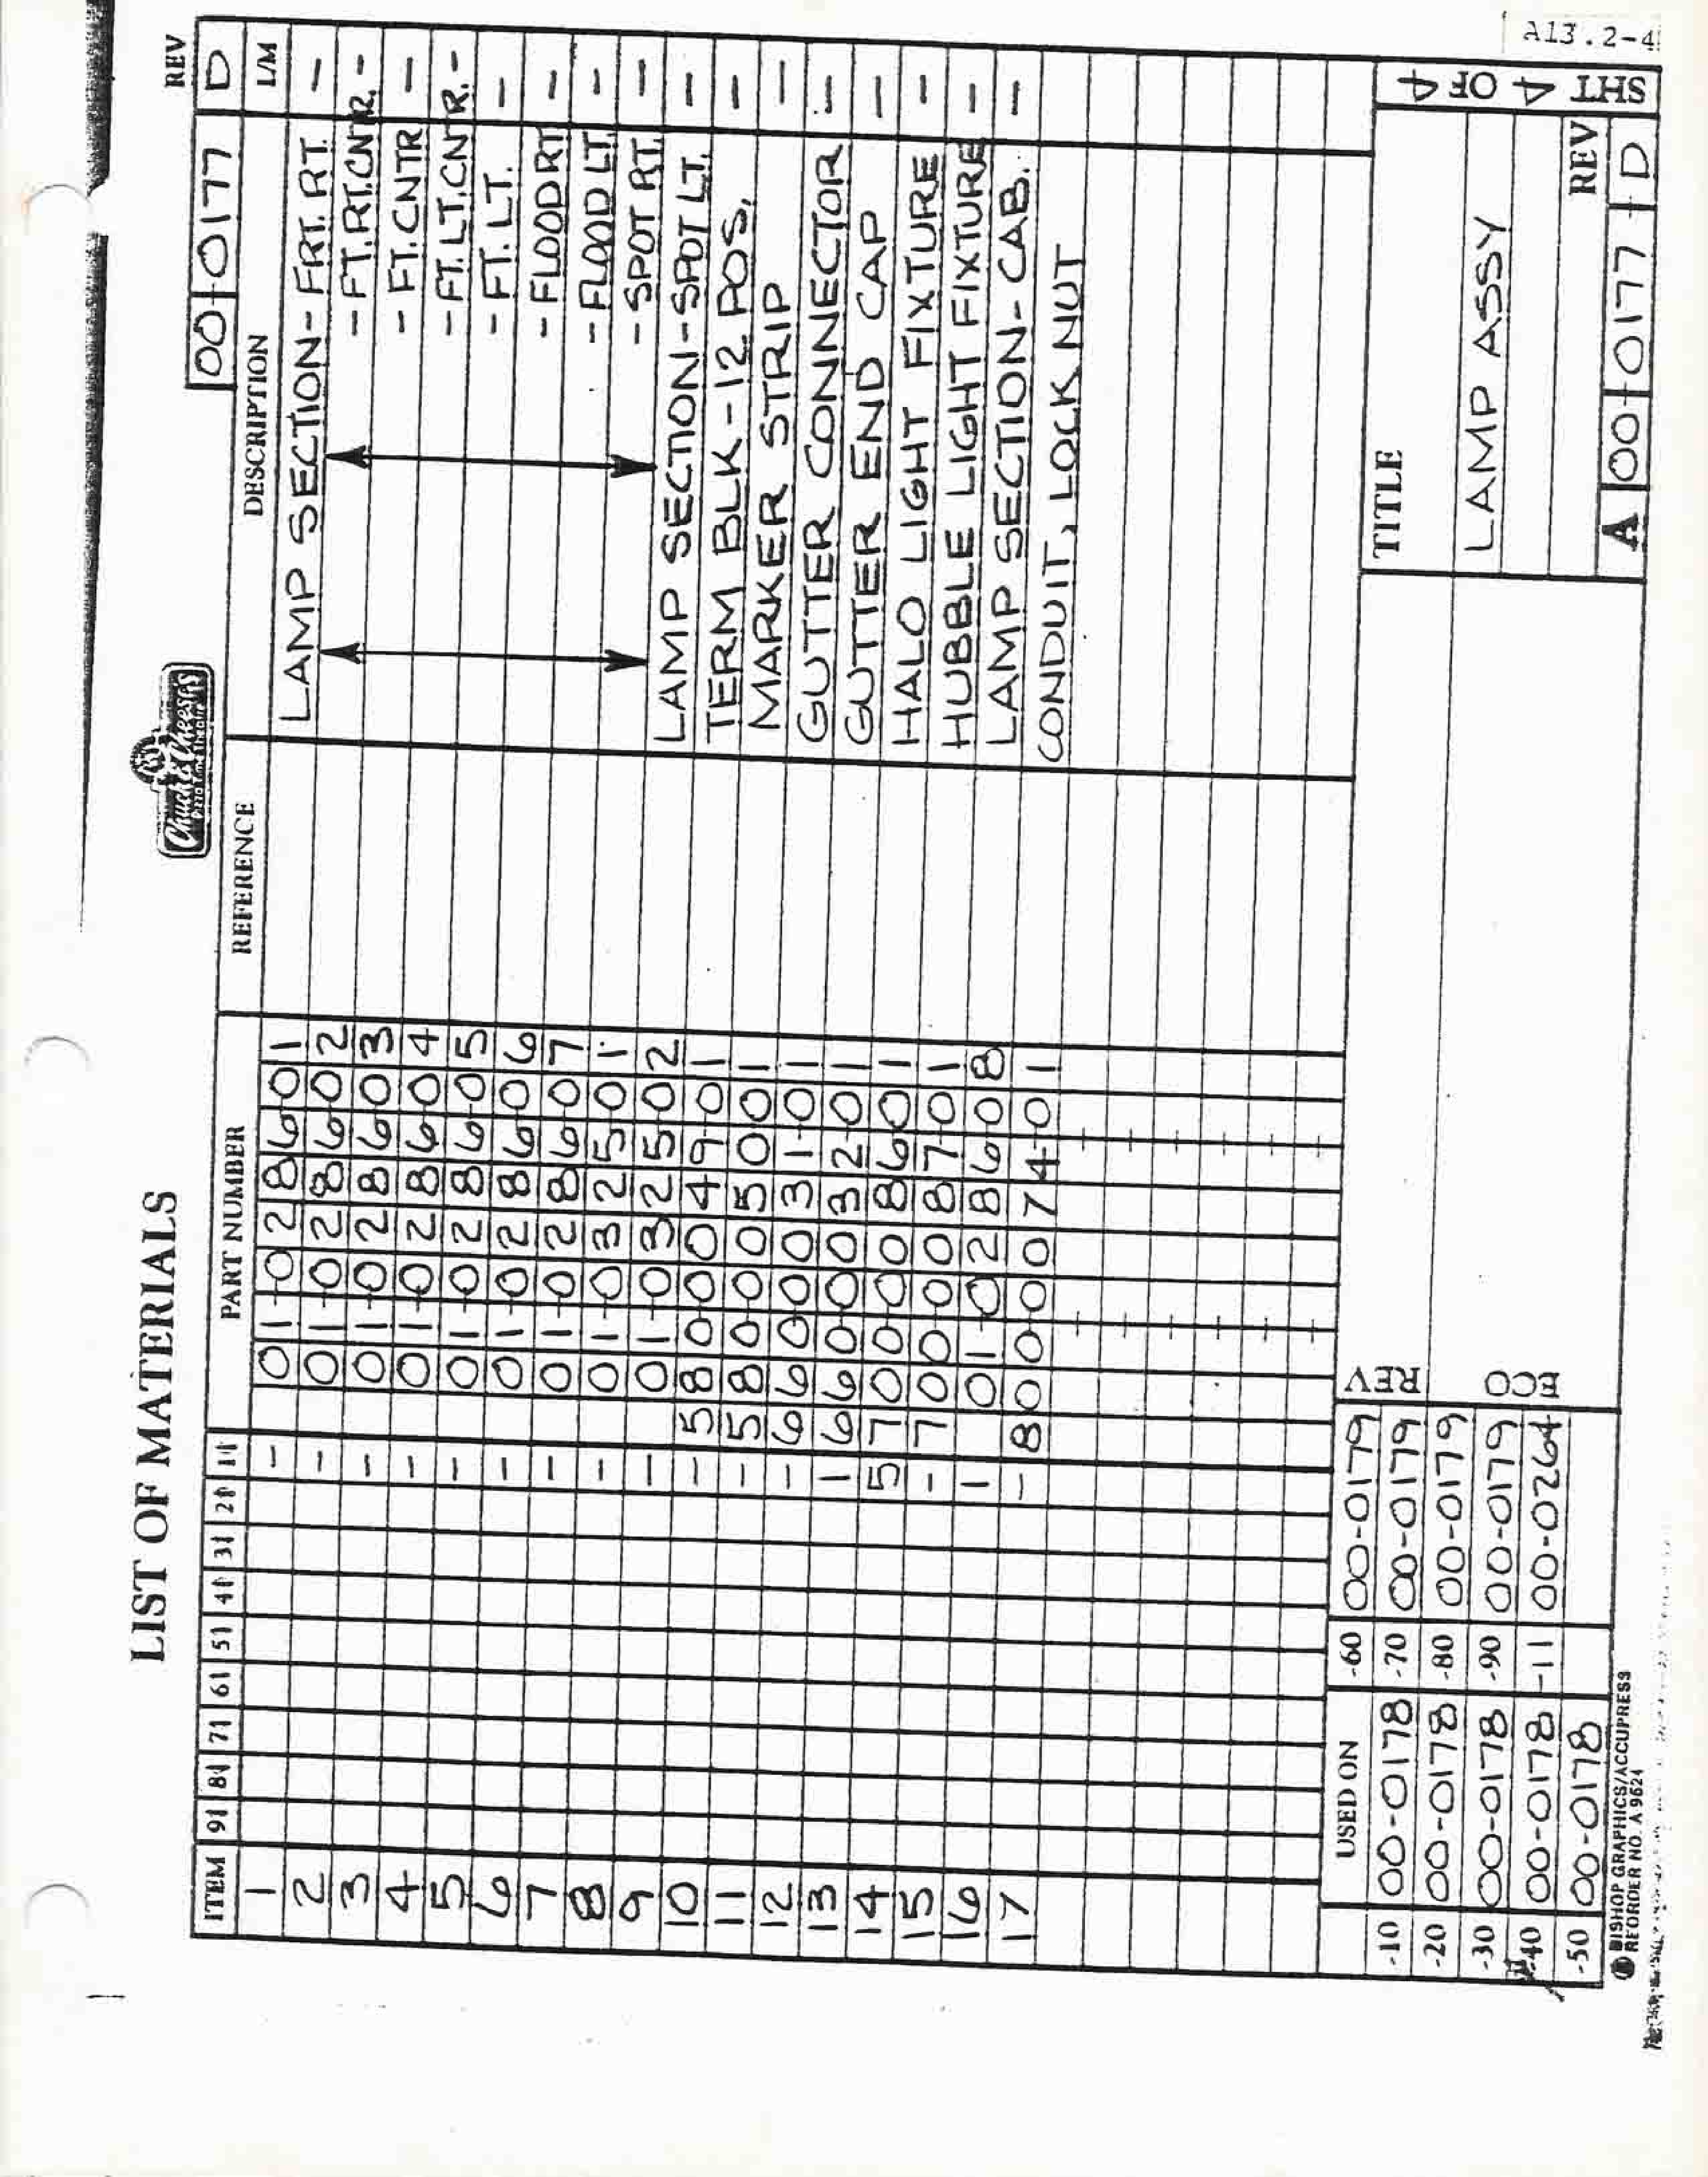 A13.2-4
LIST OF MATERIALS
Chuck E. Cheese's
REV
00-0177 D
ITEM 91 81 71 61 51 41 31 21 11 PART NUMBER REFERENCE DESCRIPTION L/M
1 - 01-0286-01 LAMP SECTION-FRT. RT. -
2 - 01-0286-02 -FT.RT.CNTR. -
3 - 01-0286-03 -FT.CNTR -
4 - 01-0286-04 -FT.LT.CNTR. -
5 - 01-0286-05 -FT.LT. -
6 - 01-0286-06 -FLOOD RT -
7 - 01-0286-07 -FLOOD LT. -
8 - 01-0325-01 -SPOT RT. -
9 - 01-0325-02 LAMP SECTION-SPOT LT. -
10 - 580-0049-01 TERM BLK-12 POS. -
11 - 580-0050-01 MARKER STRIP -
12 - 660-0031-01 GUTTER CONNECTOR -
13 1 660-0032-01 GUTTER END CAP -
14 5 700-0086-01 HALO LIGHT FIXTURE -
15 - 700-0087-01 HUBBLE LIGHT FIXTURE -
16 1 01-0286-08 LAMP SECTION-CAB. -
17 - 800-0074-01 CONDUIT, LOCK NUT
USED ON
-10 00-0178 -60 00-0179
-20 00-0178 -70 00-0179
-30 00-0178 -80 00-0179
-40 00-0178 -90 00-0179
-50 00-0178 -11 00-0264
REV
ECO
TITLE
LAMP ASSY
SHT 4 OF 4
REV
A 00-0177-D
BISHOP GRAPHICS/ACCUPRESS
REORDER NO. A 9624